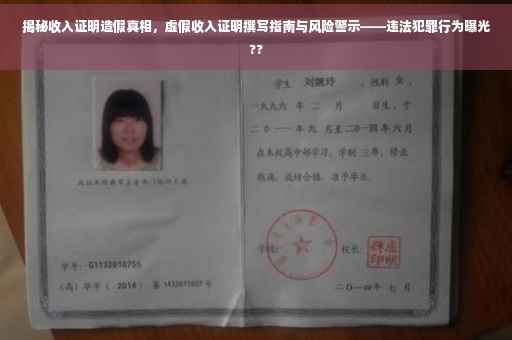 揭秘收入证明造假真相，虚假收入证明撰写指南与风险警示——违法犯罪行为曝光
??
学生 刘婉玲 ，性别 女 ，
一九九六 年 二 月 日生，于
二〇一一年九 月至二〇一四年六月
在本校高中部学习，学制 三年，修业
期满，成绩合格，准予毕业。
学号： G1132010755
学校： 校长：
（高）毕字（ 2014 ）第 1432011007 号
二〇一四年 七 月